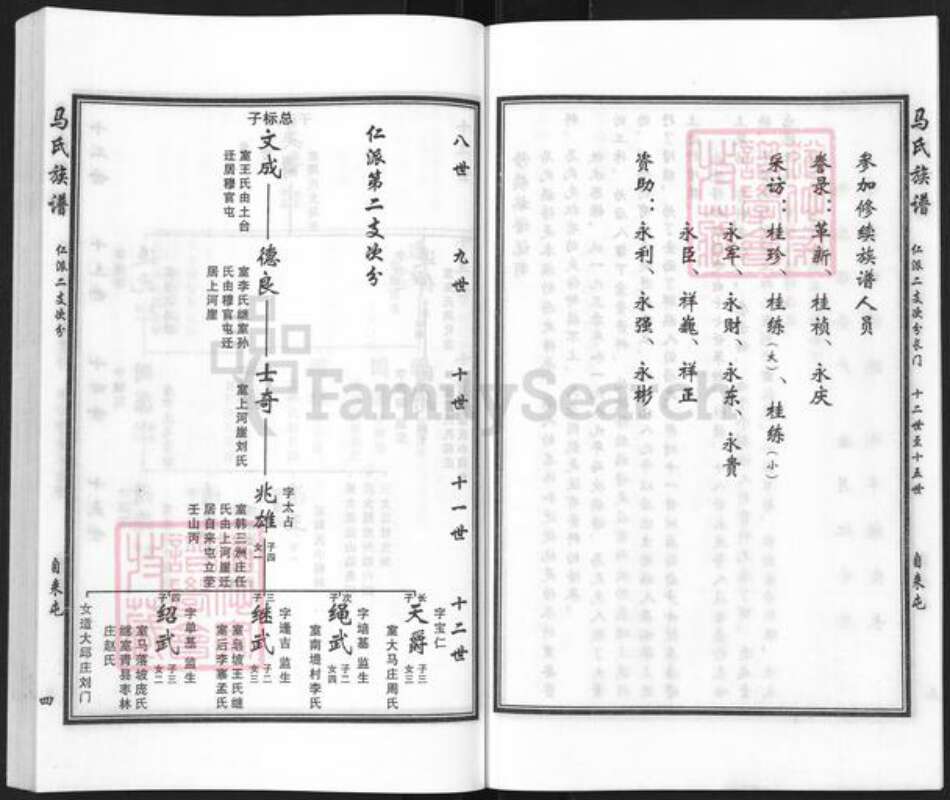 马氏族谱
仁派二支次分长门
十二世至十五世
自来屯
参加修续族谱人员
誊录：革新、桂祯、永庆
采访：桂珍、桂练（大）、桂练（小）
永军、永财、永东、永贵
永臣、祥巍、祥正
资助：永利、永强、永彬
八世
九世
十世
十一世
十二世
仁派第二支次分
总标子
文成
室王氏由土台
迁居穆官屯
德良
室李氏继室孙
氏由穆官屯迁
居上河崖
士奇
室上河崖刘氏
字太占
兆雄
子四
女一
室韩三洲庄任
氏由上河崖迁
居自来屯立茔
壬山丙
字宝仁
长子
天爵
子三
女三
室大马庄周氏
字培基 监生
次子
绳武
子二
女四
室南堤村李氏
字逢吉 监生
三子
继武
子二
女三
室乌坡王氏继
室后李寨孟氏
字单基 监生
四子
绍武
子三
女二
室马落坡庞氏
继室青县枣林
庄赵氏
女适大邱庄刘门
马氏族谱
仁派二支次分
自来屯
四
FamilySearch